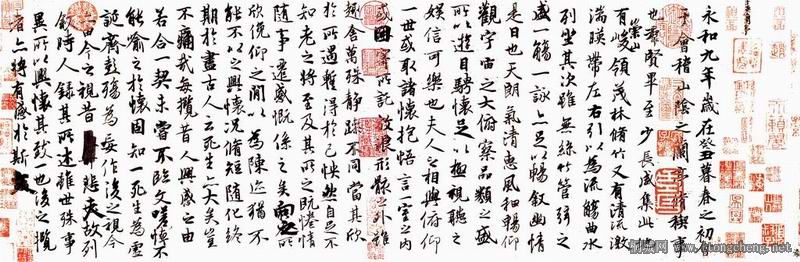 永和九年歲在癸丑暮春之初會
于會稽山陰之蘭亭脩禊事
也羣賢畢至少長咸集此地
有崇山峻領茂林脩竹又有清流激
湍暎帶左右引以為流觴曲水
列坐其次雖無絲竹管弦之
盛一觴一詠亦足以暢叙幽情
是日也天朗氣清惠風和暢仰
觀宇宙之大俯察品類之盛
所以遊目騁懷足以極視聽之
娛信可樂也夫人之相與俯仰
一世或取諸懷抱悟言一室之內
或因寄所託放浪形骸之外雖
趣舍萬殊靜躁不同當其欣
於所遇暫得於己怏然自足不
知老之將至及其所之既惓情
隨事遷感慨係之矣向之所
欣俛仰之閒以為陳迹猶不
能不以之興懷況脩短隨化終
期於盡古人云死生亦大矣豈
不痛哉每攬昔人興感之由
若合一契未嘗不臨文嗟悼不
能喻之於懷固知一死生為虛
誕齊彭殤為妄作後之視今
亦由今之視昔悲夫故列
敘時人錄其所述雖世殊事
異所以興懷其致一也後之攬
者亦將有感於斯文